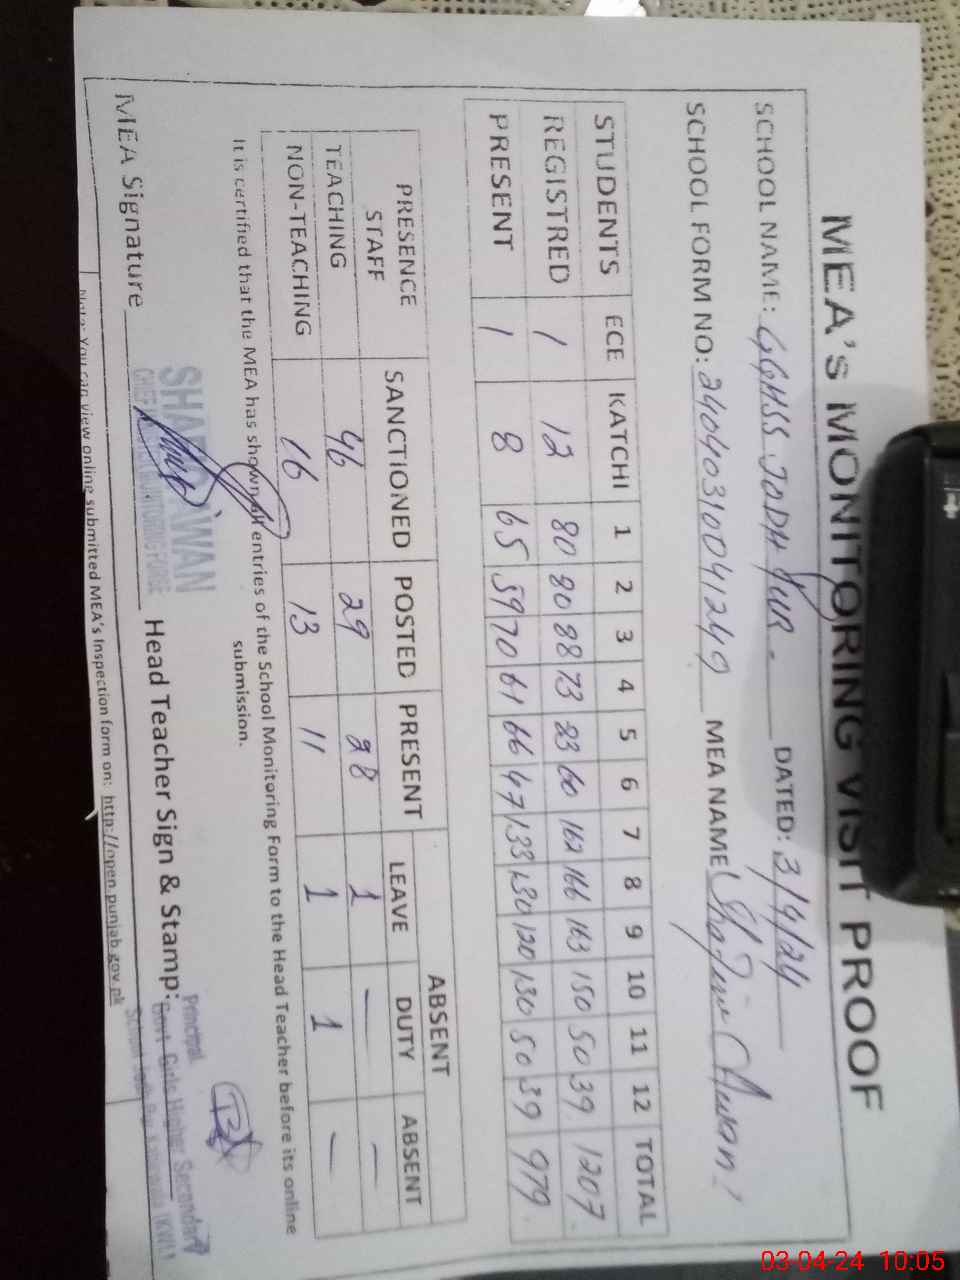 MEA'S MONITORING VISIT PROOF
SCHOOL NAME: GGHSS JODH PUR - DATED: 3/4/24
SCHOOL FORM NO: 24040310041249 MEA NAME Awan
STUDENTS ECE KATCHI 1 2 3 4 5 6 7 8 9 10 11 12 TOTAL
REGISTRED 1 12 80 80 88 73 83 60 162 166 163 150 50 39 1207
PRESENT 1 8 65 59 70 61 66 47 133 130 120 130 50 39 979
PRESENCE STAFF SANCTIONED POSTED PRESENT ABSENT
LEAVE DUTY ABSENT
TEACHING 46 29 28 1 — —
NON-TEACHING 16 13 11 1 1 —
It is certified that the MEA has shown all entries of the School Monitoring Form to the Head Teacher before its online
submission.
MEA Signature Head Teacher Sign & Stamp:
Principal
Govt. Girls Higher Secondary
School Jodh Pur
Note: You can view online submitted MEA's Inspection form on: http://open.punjab.gov.pk
03-04-24 10:05